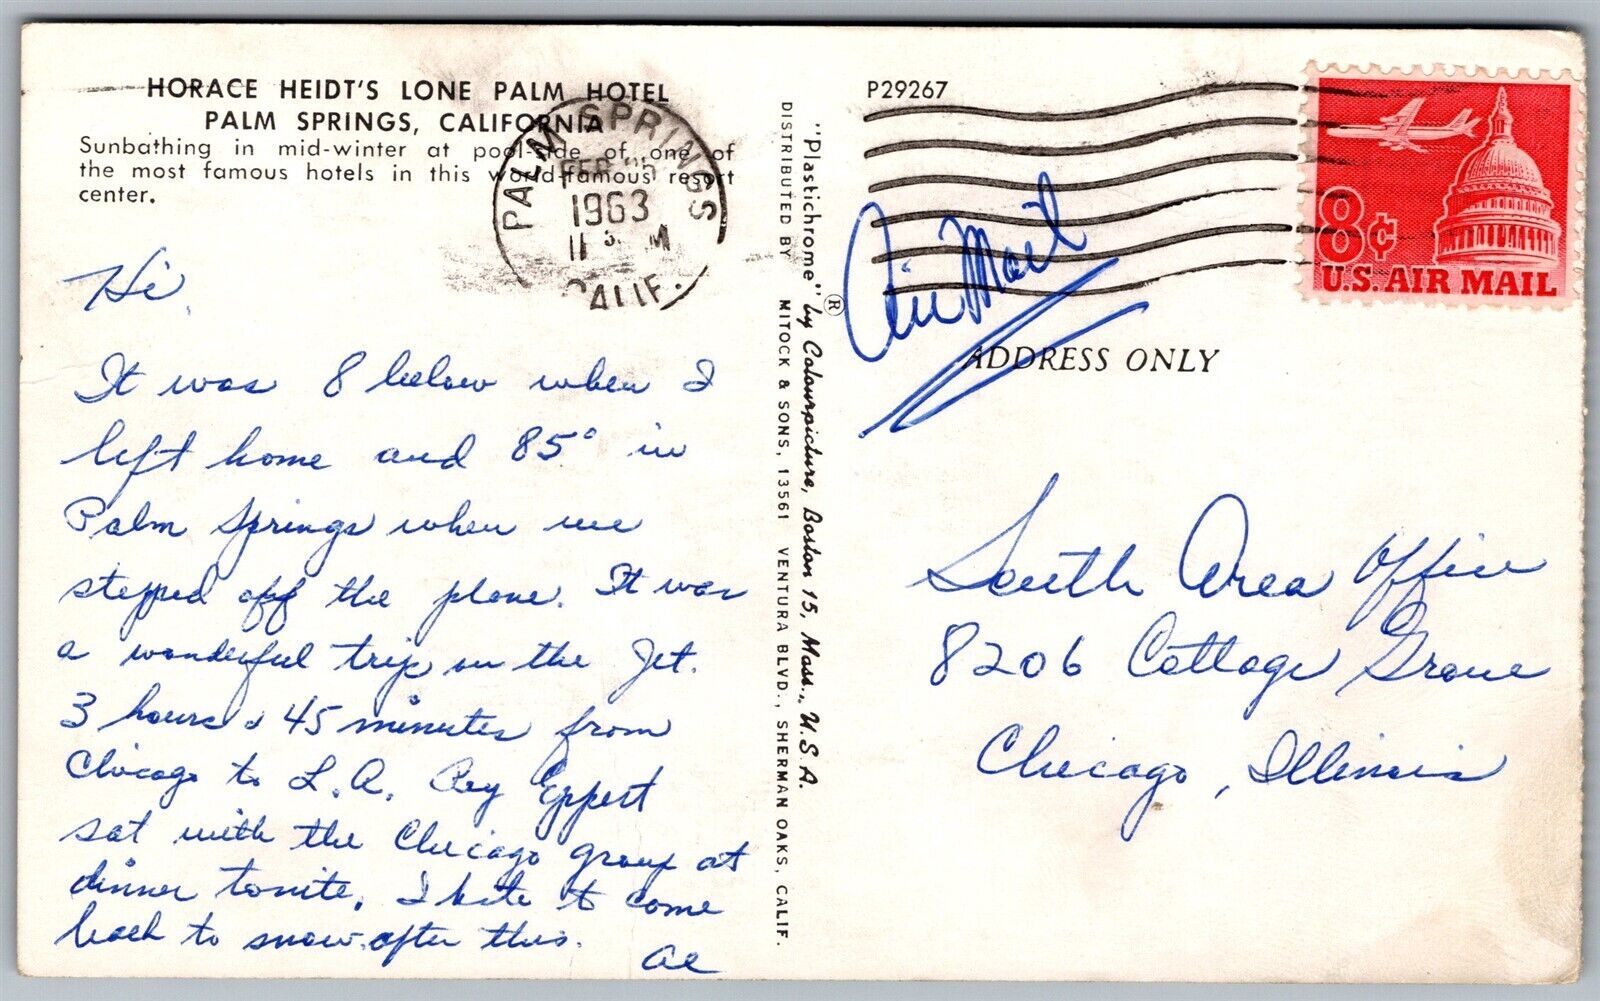 HORACE HEIDT'S LONE PALM HOTEL
PALM SPRINGS, CALIFORNIA
Sunbathing in mid-winter at pool-side of one of
the most famous hotels in this world-famous resort
center.
PALM SPRINGS
FEB
1963
11 M
CALIF.
Hi,
It was 8 below when I
left home and 85° in
Palm Springs when we
stepped off the plane. It was
a wonderful trip on the Jet.
3 hours & 45 minutes from
Chicago to L.A. Ray Eppert
sat with the Chicago group at
dinner tonite. I hate to come
back to snow after this.
Al
"Plastichrome"® by Colourpicture, Boston 15, Mass., U.S.A.
DISTRIBUTED BY MITOCK & SONS, 13561 VENTURA BLVD., SHERMAN OAKS, CALIF.
P29267
8¢
U.S. AIR MAIL
Air Mail
ADDRESS ONLY
South Area Office
8206 Cottage Grove
Chicago, Illinois